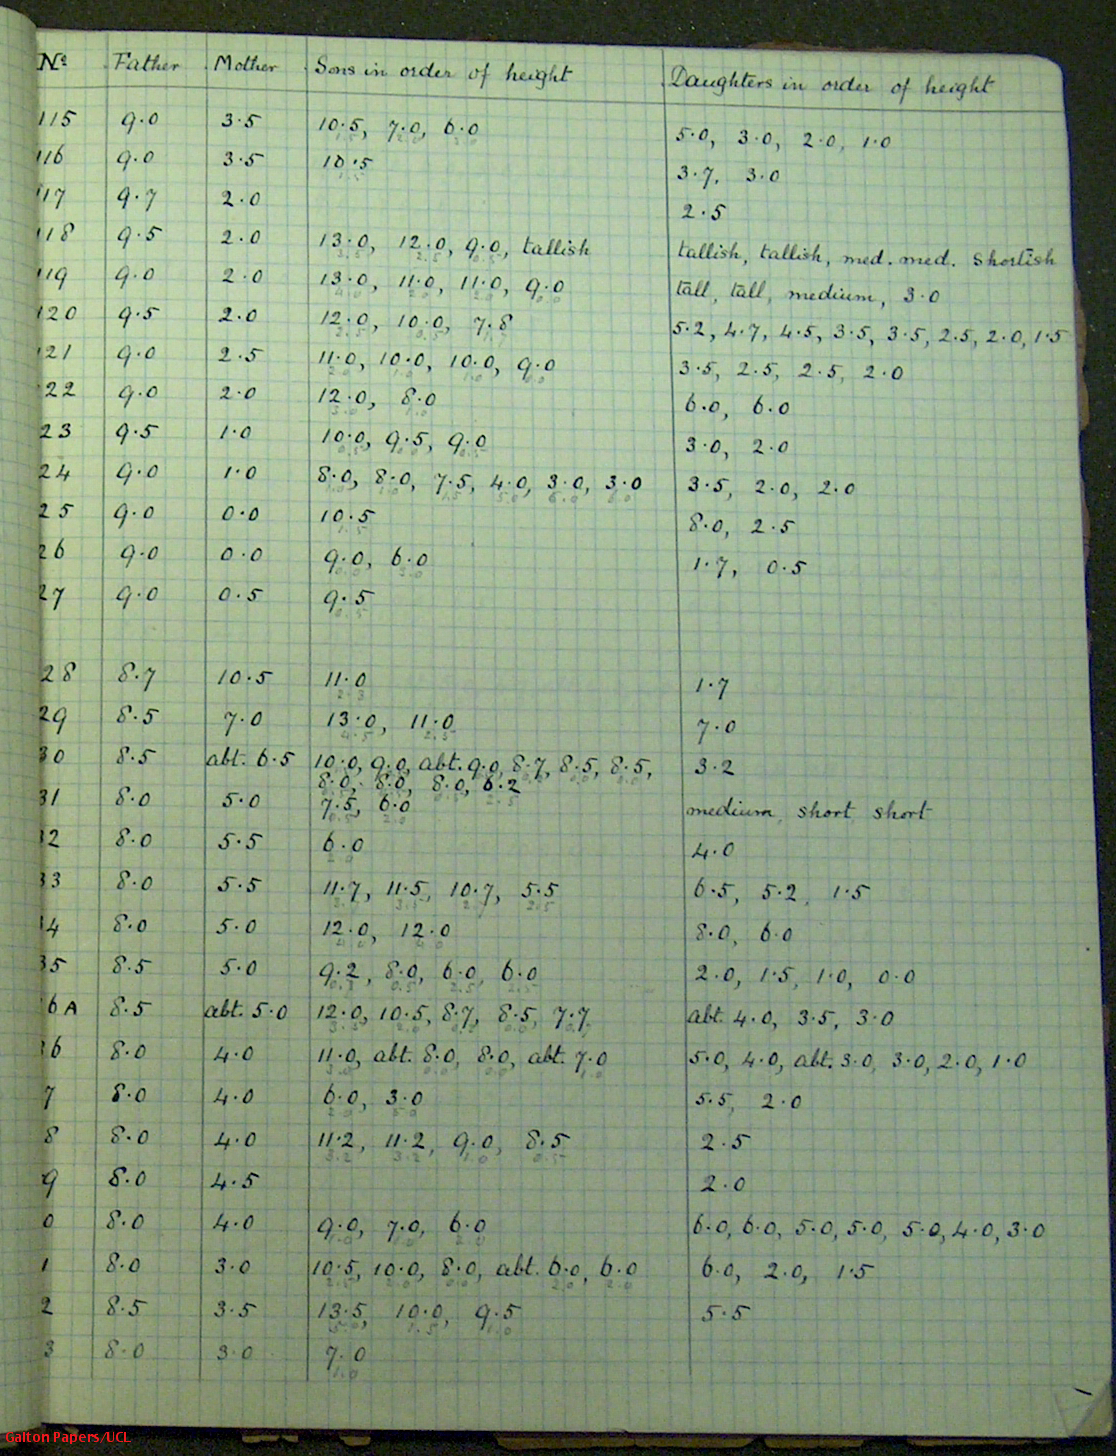 Nº Father Mother Sons in order of height Daughters in order of height
115 9.0 3.5 10.5, 7.0, 6.0 5.0, 3.0, 2.0, 1.0
116 9.0 3.5 10.5 3.7, 3.0
117 9.7 2.0 2.5
118 9.5 2.0 13.0, 12.0, 9.0, tallish tallish, tallish, med. med. shortish
119 9.0 2.0 13.0, 11.0, 11.0, 9.0 tall, tall, medium, 3.0
120 9.5 2.0 12.0, 10.0, 7.8 5.2, 4.7, 4.5, 3.5, 3.5, 2.5, 2.0, 1.5
121 9.0 2.5 11.0, 10.0, 10.0, 9.0 3.5, 2.5, 2.5, 2.0
122 9.0 2.0 12.0, 8.0 6.0, 6.0
23 9.5 1.0 10.0, 9.5, 9.0 3.0, 2.0
24 9.0 1.0 8.0, 8.0, 7.5, 4.0, 3.0, 3.0 3.5, 2.0, 2.0
25 9.0 0.0 10.5 8.0, 2.5
26 9.0 0.0 9.0, 6.0 1.7, 0.5
27 9.0 0.5 9.5
28 8.7 10.5 11.0 1.7
29 8.5 7.0 13.0, 11.0 7.0
30 8.5 abt. 6.5 10.0, 9.0, abt. 9.0, 8.7, 8.5, 8.5, 3.2
8.0, 8.0, 8.0, 6.2
31 8.0 5.0 7.5, 6.0 medium, short short
32 8.0 5.5 6.0 4.0
33 8.0 5.5 11.7, 11.5, 10.7, 5.5 6.5, 5.2, 1.5
34 8.0 5.0 12.0, 12.0 8.0, 6.0
35 8.5 5.0 9.2, 8.0, 6.0, 6.0 2.0, 1.5, 1.0, 0.0
36A 8.5 abt. 5.0 12.0, 10.5, 8.7, 8.5, 7.7 abt. 4.0, 3.5, 3.0
36 8.0 4.0 11.0, abt. 8.0, 8.0, abt. 7.0 5.0, 4.0, abt. 3.0, 3.0, 2.0, 1.0
7 8.0 4.0 6.0, 3.0 5.5, 2.0
8 8.0 4.0 11.2, 11.2, 9.0, 8.5 2.5
9 8.0 4.5 2.0
0 8.0 4.0 9.0, 7.0, 6.0 6.0, 6.0, 5.0, 5.0, 5.0, 4.0, 3.0
1 8.0 3.0 10.5, 10.0, 8.0, abt. 6.0, 6.0 6.0, 2.0, 1.5
2 8.5 3.5 13.5, 10.0, 9.5 5.5
3 8.0 3.0 7.0
Galton Papers/UCL